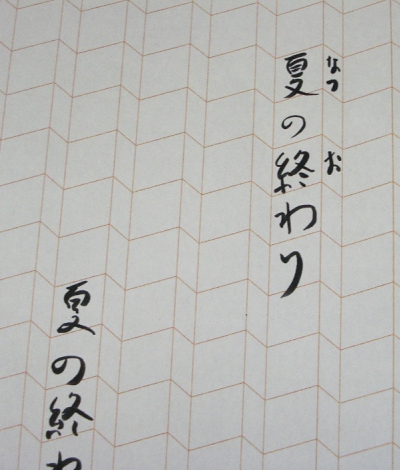 夏の終わり
なつ お
夏の終わ